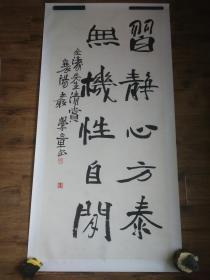 習靜心方泰
無機性自閒
金濤先生清賞
襄陽